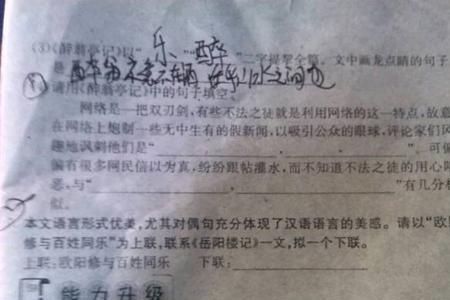 (3)《醉翁亭记》以“乐”“醉”二字提挈全篇。文中画龙点睛的句子
是 醉翁之意不在酒 在乎山水之间也
请用《醉翁亭记》中的句子填空。
网络是一把双刃剑,有些不法之徒就是利用网络的这一特点,故意
在网络上炮制一些无中生有的假新闻,以吸引公众的眼球,评论家们风
趣地讽刺他们是“ , ”,可偏
偏有很多网民信以为真,纷纷跟帖灌水,而不知道不法之徒的用心险
恶,与“ , ”有几分相
似。
本文语言形式优美,尤其对偶句充分体现了汉语语言的美感。请以“欧阳
修与百姓同乐”为上联,联系《岳阳楼记》一文,拟一个下联。
上联:欧阳修与百姓同乐 下联:
能力升级